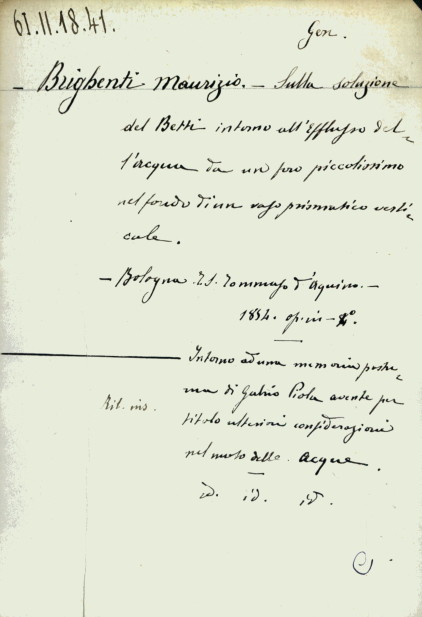 61.II.18.41.
Gen.
– Brighenti Maurizio. – Sulla soluzione
del Betti intorno all'Efflusso del-
l'acqua da un foro piccolissimo
nel fondo di un vaso prismatico verti-
cale.
– Bologna. T. S. Tommaso d'Aquino. –
1834. op. in-4°.
Intorno ad una memoria postu-
ma di Gabrio Piola avente per
titolo ulteriori considerazioni
nel moto delle acque.
id. id. id.